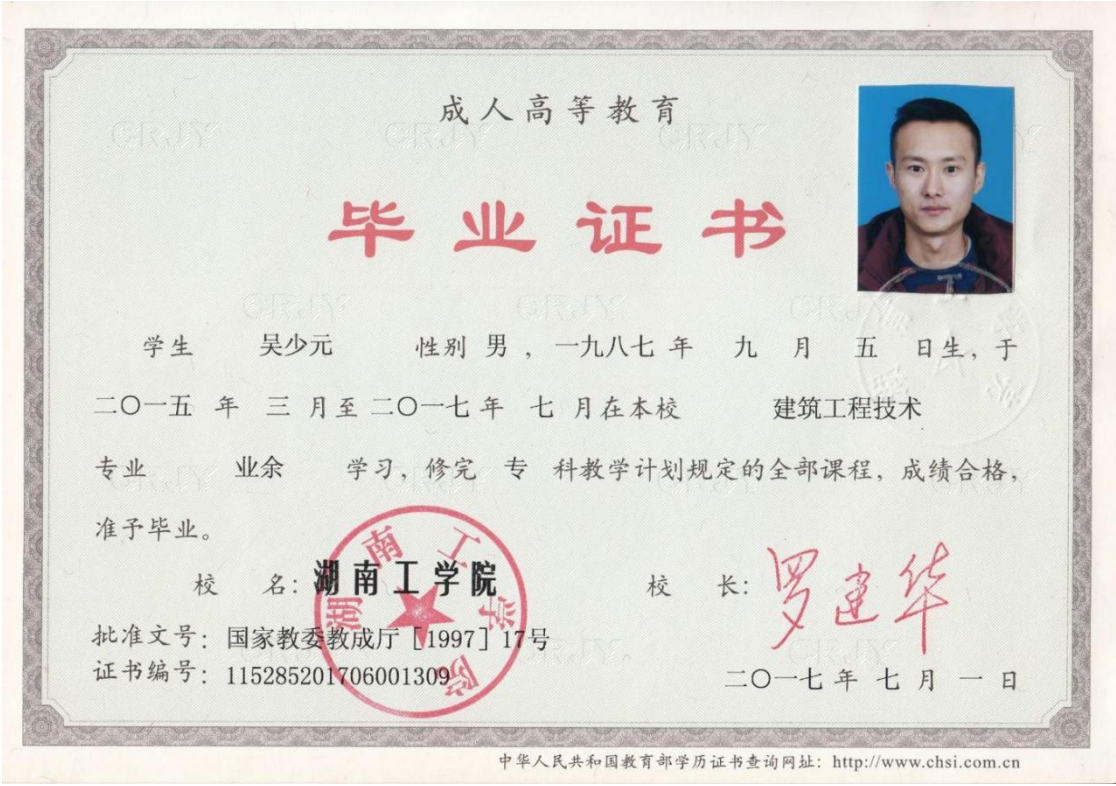 成人高等教育
毕业证书
学生 吴少元 性别 男 ，一九八七 年 九 月 五 日生，于
二〇一五 年 三 月至 二〇一七 年 七 月在本校 建筑工程技术
专业 业余 学习，修完 专 科教学计划规定的全部课程，成绩合格，
准予毕业。
校 名：湖南工学院
校 长：罗建华
湖南工学院
批准文号：国家教委教成厅［1997］17号
证书编号：115285201706001309
二〇一七 年 七 月 一 日
中华人民共和国教育部学历证书查询网址：http://www.chsi.com.cn
CRJY